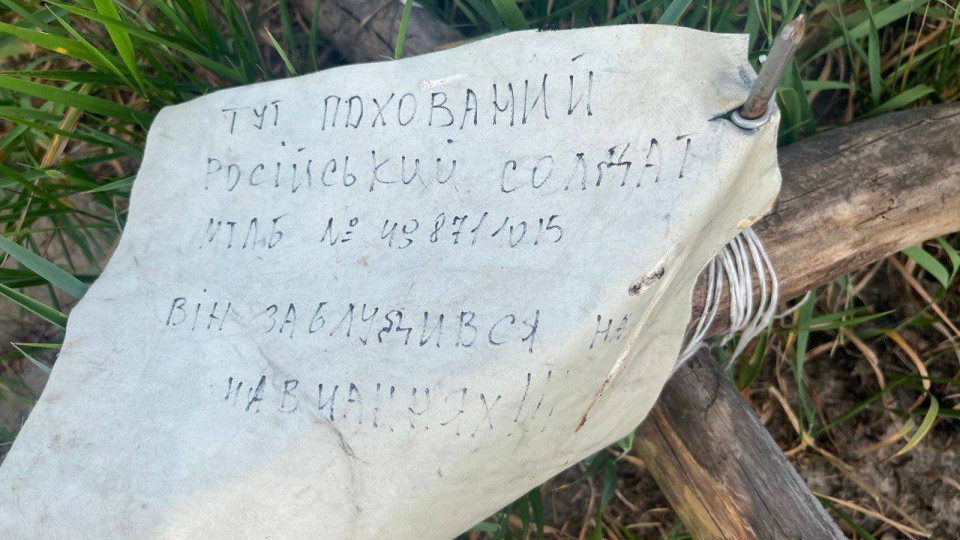 ТУТ ПОХОВАНИЙ
РОСІЙСЬКИЙ СОЛДАТ
№
ВІН ЗАБЛУДИВСЯ НА
НАВЧАННЯХ!!!